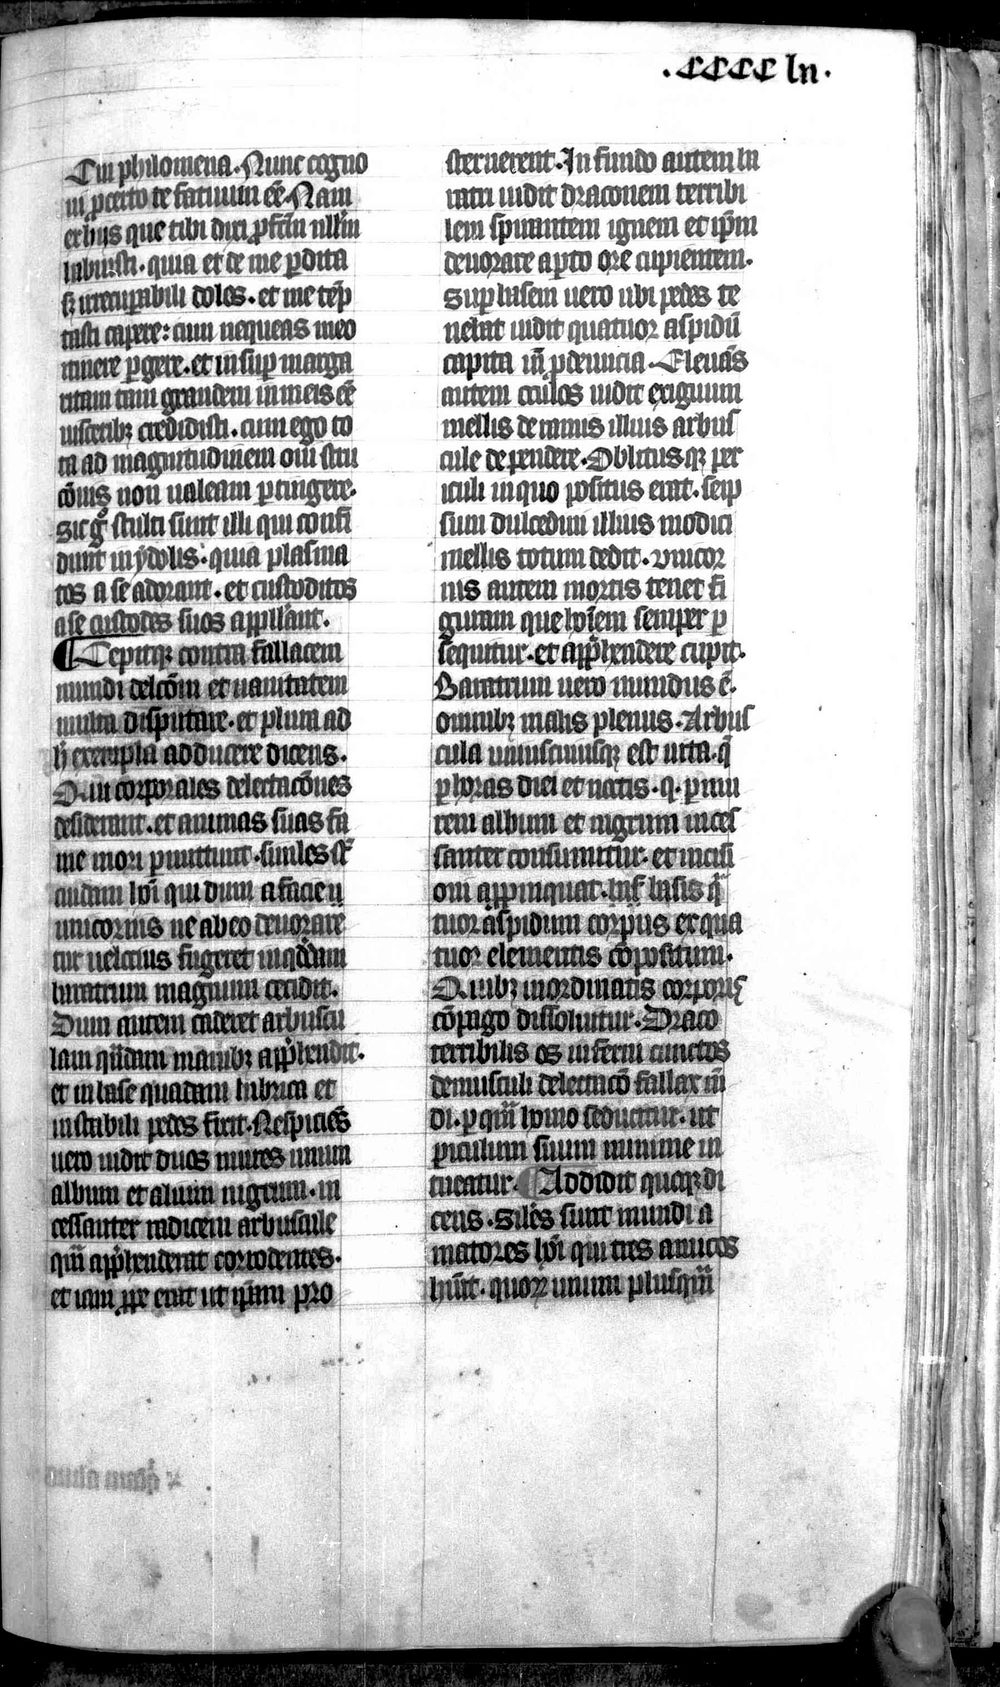 .CCCC ln.
Cui philomena. Nunc cogno
ui ꝓ certo te fatuum eē. Nam
ex hijs que tibi dixi ꝓfctm̄ nullm̄
habuisti. quia et de me ꝑdita
ſꝫ irrecuꝑabili doles. et me tēp
tasti capere: cum nequeas meo
itinere ꝑgere. et insuꝑ marga
ritam tam grandem in meis eē
uisceribꝫ credidisti. cum ego to
ta ad magnitudinem oui stru
cōnis non ualeam ꝑtingere.
Sic gͦ stulti sunt illi qui confi
dunt in ydolis. quia plasma
tos a se adorant. et custoditos
a se custodes suos appellāt.
¶ Cepitqꝫ contra fallacem
mundi delcōm et uanitatem
multa disputare. et plura ad
h̄ exempla adducere dicens.
Qui corporales delectacōnes
desiderant. et animas suas fa
me mori ꝑmittunt. similes st̄
cuidam hōi qui dum a facie
unicornis ne ab eo deuorare
tur uelocius fugeret in qd̄dam
baratrum magnum cecidit.
Dum autem caderet arbuscu
lam qūdam manibꝫ app̄hendit.
et in base quadam lubrica et
instabili pedes fixit. Respiciēs
uero uidit duos mures unum
album et alium nigrum. in
cessanter radicem arbuscule
qūm app̄henderat corrodentes.
et iam ꝓpe erat ut ip̄am pro
sternerent. In fundo autem ba
ratri uidit draconem terribi
lem spirantem ignem et ip̄m
deuorare aꝑto ore cupientem.
Suꝑ basem uero ubi pedes te
nebat uidit quatuor aspidū
capita in̄ ꝓdeuncia. Eleuās
autem oculos uidit exiguum
mellis de ramis illius arbus
cule dependere. Oblitusqꝫ per
iculi in quo positus erat. seip
sum dulcedini illius modici
mellis totum dedit. Unicor
nis autem mortis tenet fi
guram que hōīem semper ꝑ
sequitur. et app̄hendere cupit.
Baratrum uero mundus ē.
omnibꝫ malis plenus. Arbus
cula uniuscuiusqꝫ est uita. q̄
ꝑ horas diei et noctis. q. ꝑ mu
rem album et nigrum inces
santer consumitur. et incisi
oni appinquat.  basis qͣ
tuor aspidum corpus ex qua
tuor elementis cōpositum.
Quibꝫ inordinatis corporis
cōpago dissoluitur. Draco
terribilis os inferni cunctos
 delectacō fallax mū
di. ꝑ qūm homo seducitur. ut
ꝑiculum suum minime in
tueatur. ¶ Addidit quoqꝫ di
cens. Silēs sunt mundi a
matores hōi qui tres amicos
hūit. quoꝝ unum plusqūm